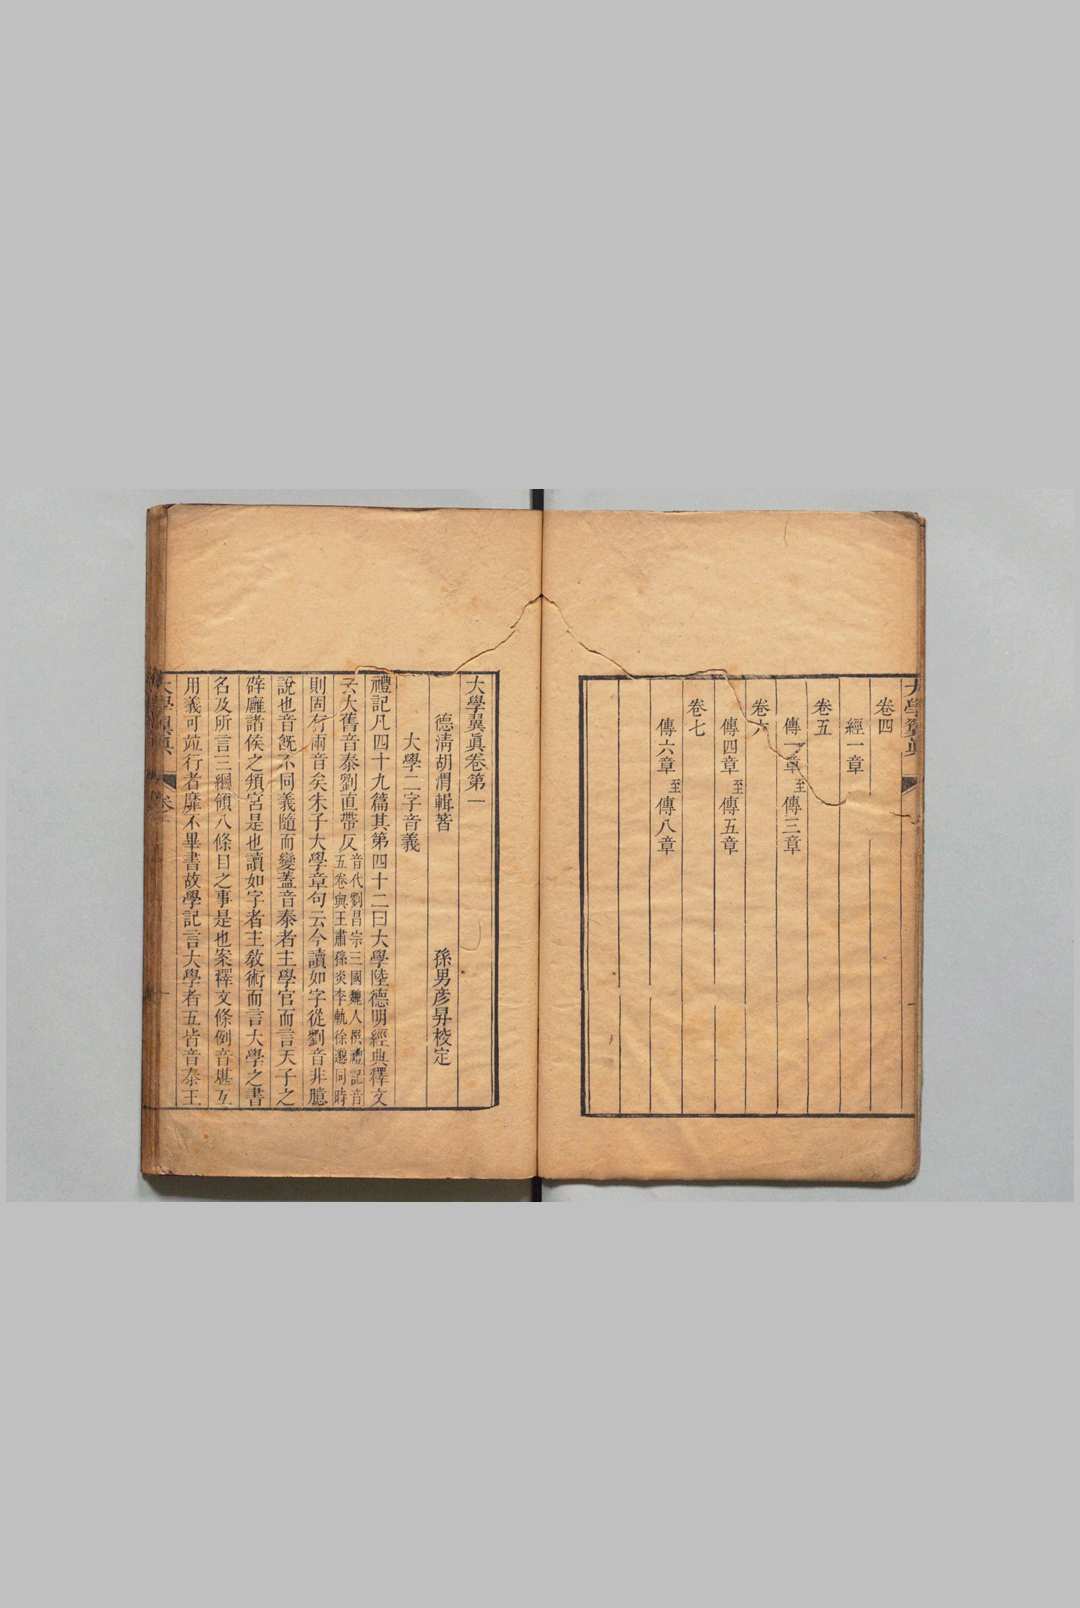 大學翼眞
卷四
經一章
卷五
傳一章至傳三章
卷六
傳四章至傳五章
卷七
傳六章至傳八章
大學翼眞卷第一
德淸胡渭輯著　孫男彥昇校定
大學二字音義
禮記凡四十九篇其第四十二曰大學陸德明經典釋文
云大舊音泰劉直帶反音代劉昌宗三國魏人撰禮記音五卷與王肅孫炎李軌徐邈同時
則固有兩音矣朱子大學章句云今讀如字從劉音非臆
說也音旣不同義隨而變蓋音泰者主學官而言天子之
辟廱諸侯之頖宮是也讀如字者主敎術而言大學之書
名及所言三綱領八條目之事是也案釋文條例音堪互
用義可竝行者靡不畢書故學記言大學者五皆音泰王
大學翼眞　卷一